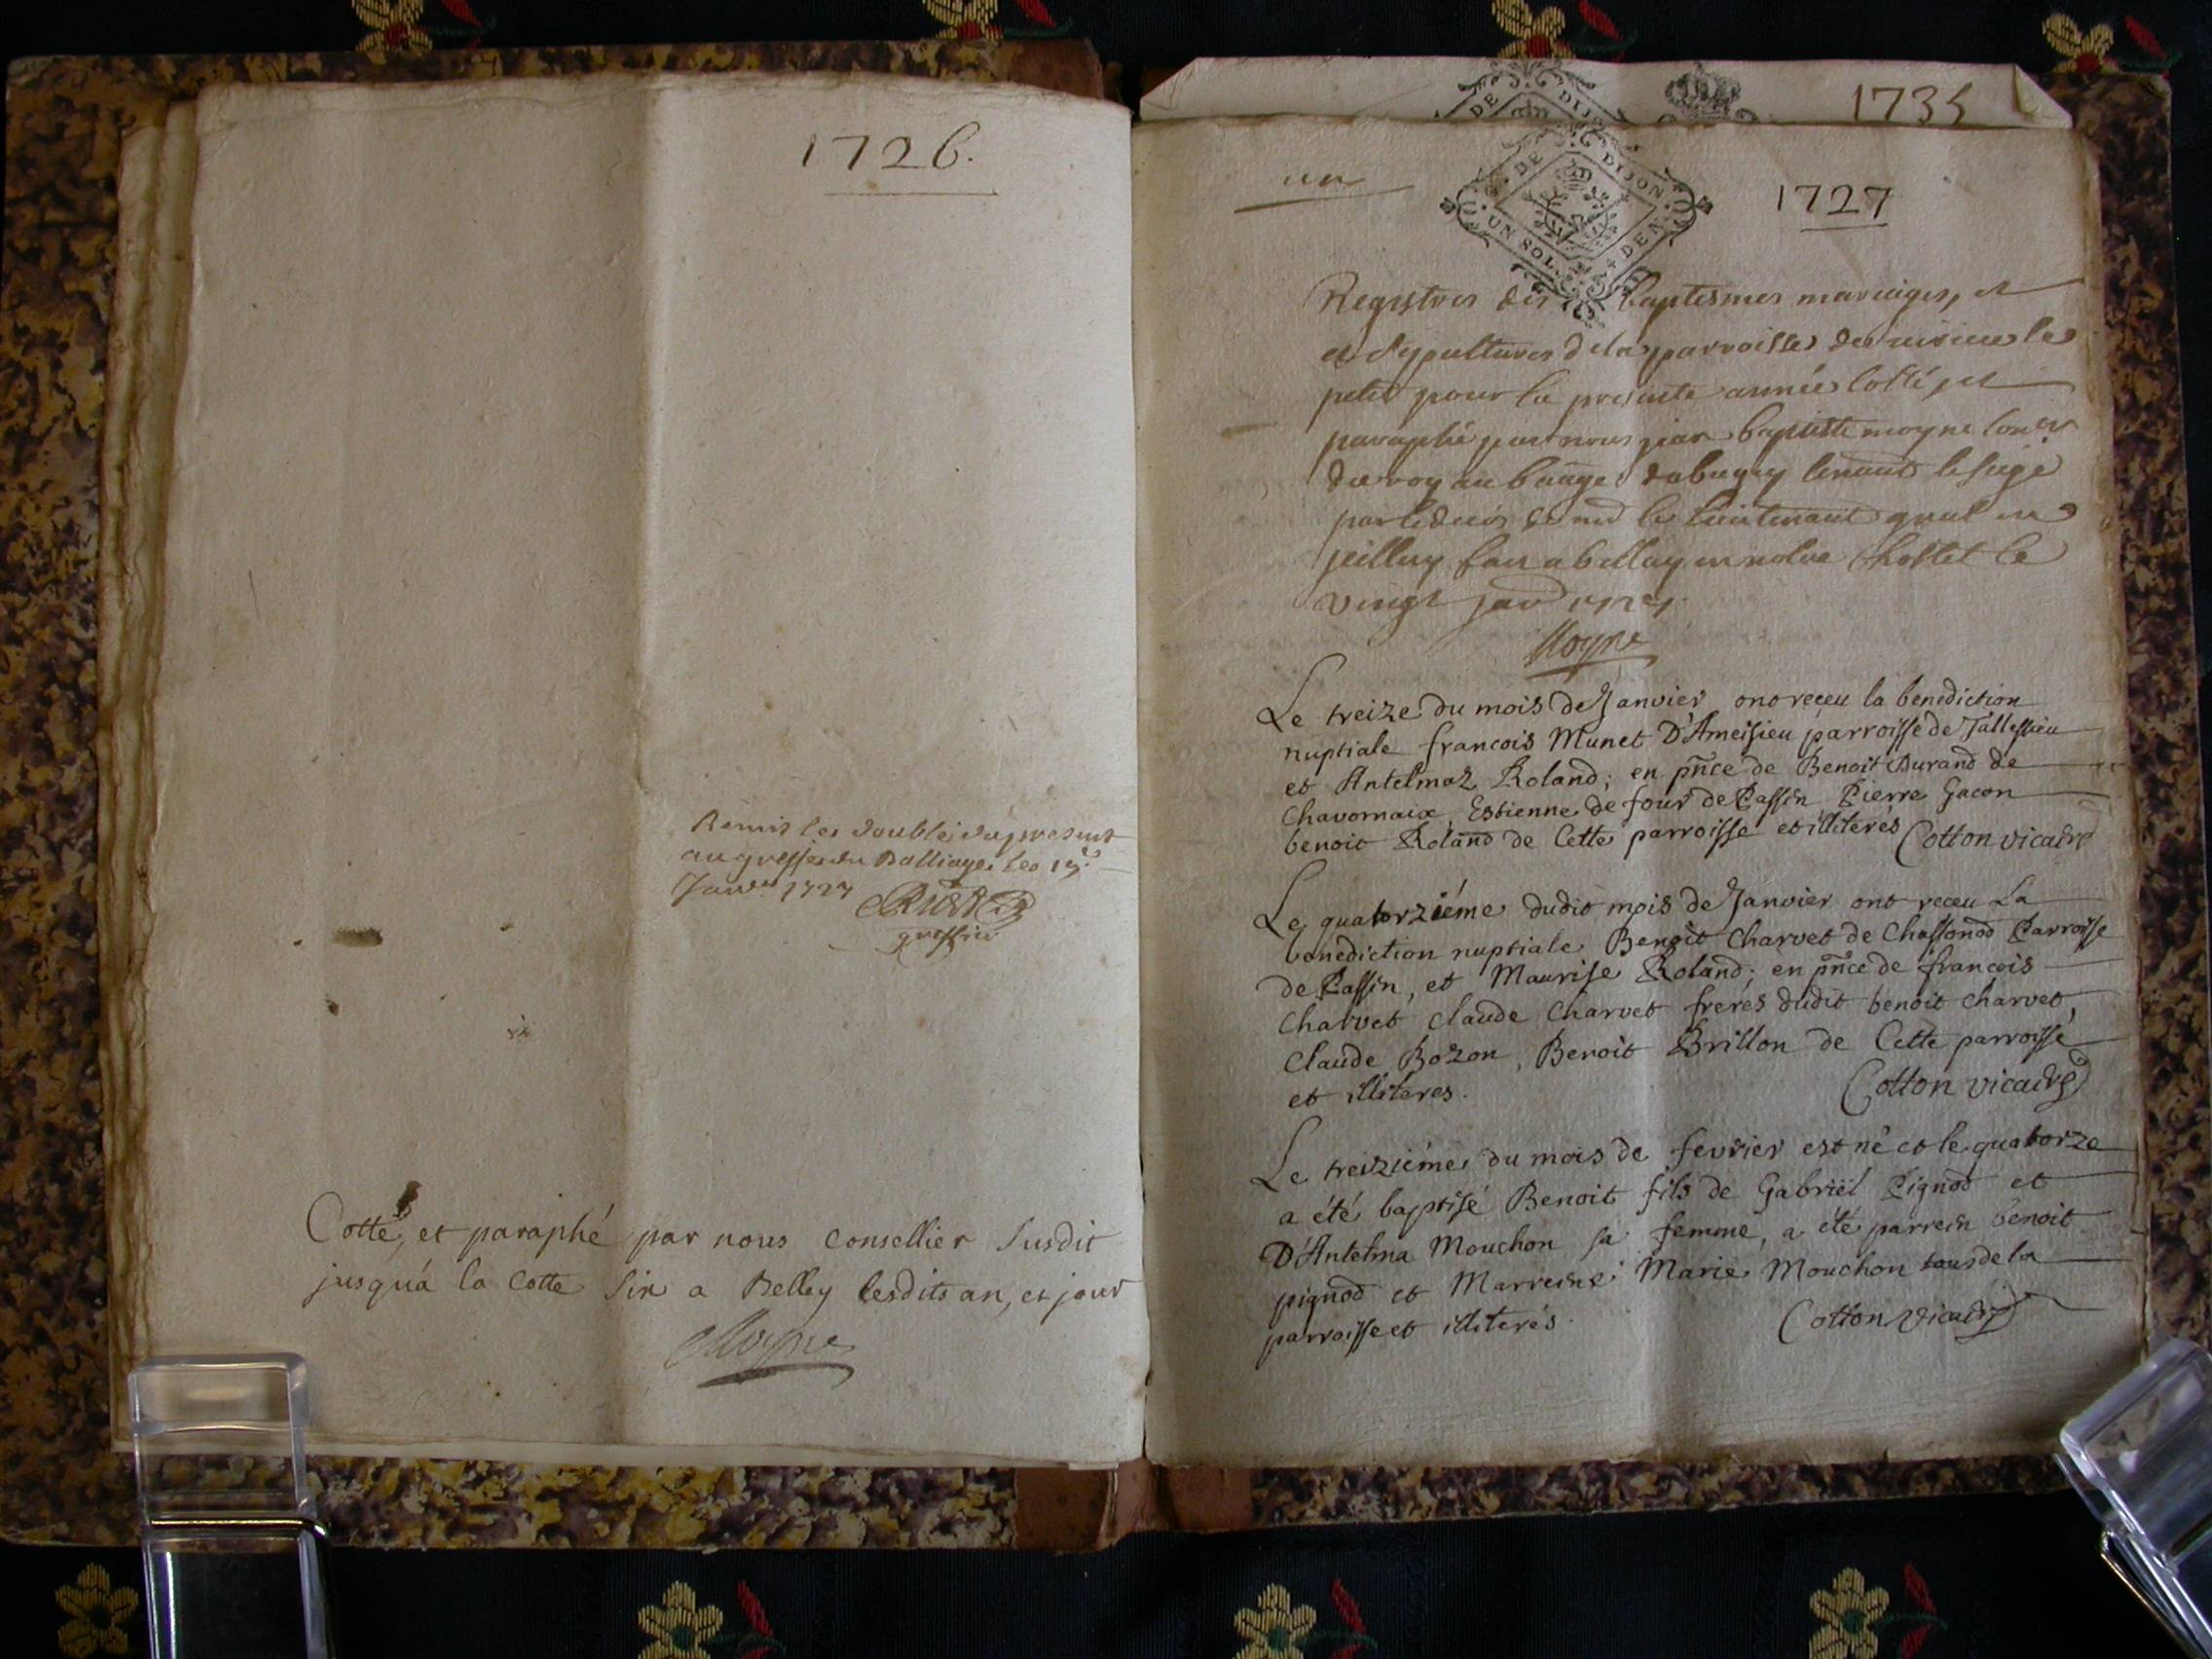 1726.
Remis les doubles du present
au greffe du Balliage Le 17e
Janver 1727
greffier
Cotté, et paraphé par nous Consellier Susdit
jusqu'a la Cotte Six a Belley lesdits an, et jour
Moyne
1735
DE DIJON
un
DE DIJON
UN SOL. 4 DEN.
1727
Registres des Baptesmes mariages, et
et Sepultures de la parroisse de virieu le
petit pour la presente année Cotté et
paraphé par nous jean baptiste moyne Coner
du roy au baage du bugey tenant le siege
par le deces de mr le Lieutenant gnal
fait a belley en notre hostel le
vingt janv 1727
Moyne
Le treize du mois de Janvier ont receu la benediction
nuptiale francois Munet D'Ameisieu parroisse de Tallissieu
et Antelmaz Roland; en pñce de Benoit Durand de
Chavornaix, Estienne de four de Passin Pierre Gacon
benoit Roland de Cette parroisse et illiterés Cotton vicaire
Le quatorziéme dudit mois de Janvier ont receu La
benediction nuptiale Benoit Charvet de Chassonod Parroisse
de Passin, et Maurise Roland; en pñce de francois
Charvet Claude Charvet freres dudit benoit charvet,
Claude Bozon, Benoit Brillon de Cette parroisse
et illiteres. Cotton vicaire
Le treiziéme du mois de fevrier est né et le quatorze
a été baptisé Benoit fils de Gabriël Pignod et
D'Antelma Mouchon sa femme, a été parrein benoit
pignod et Marreine Marie Mouchon tous de la
parroisse et illiterés. Cotton vicaire